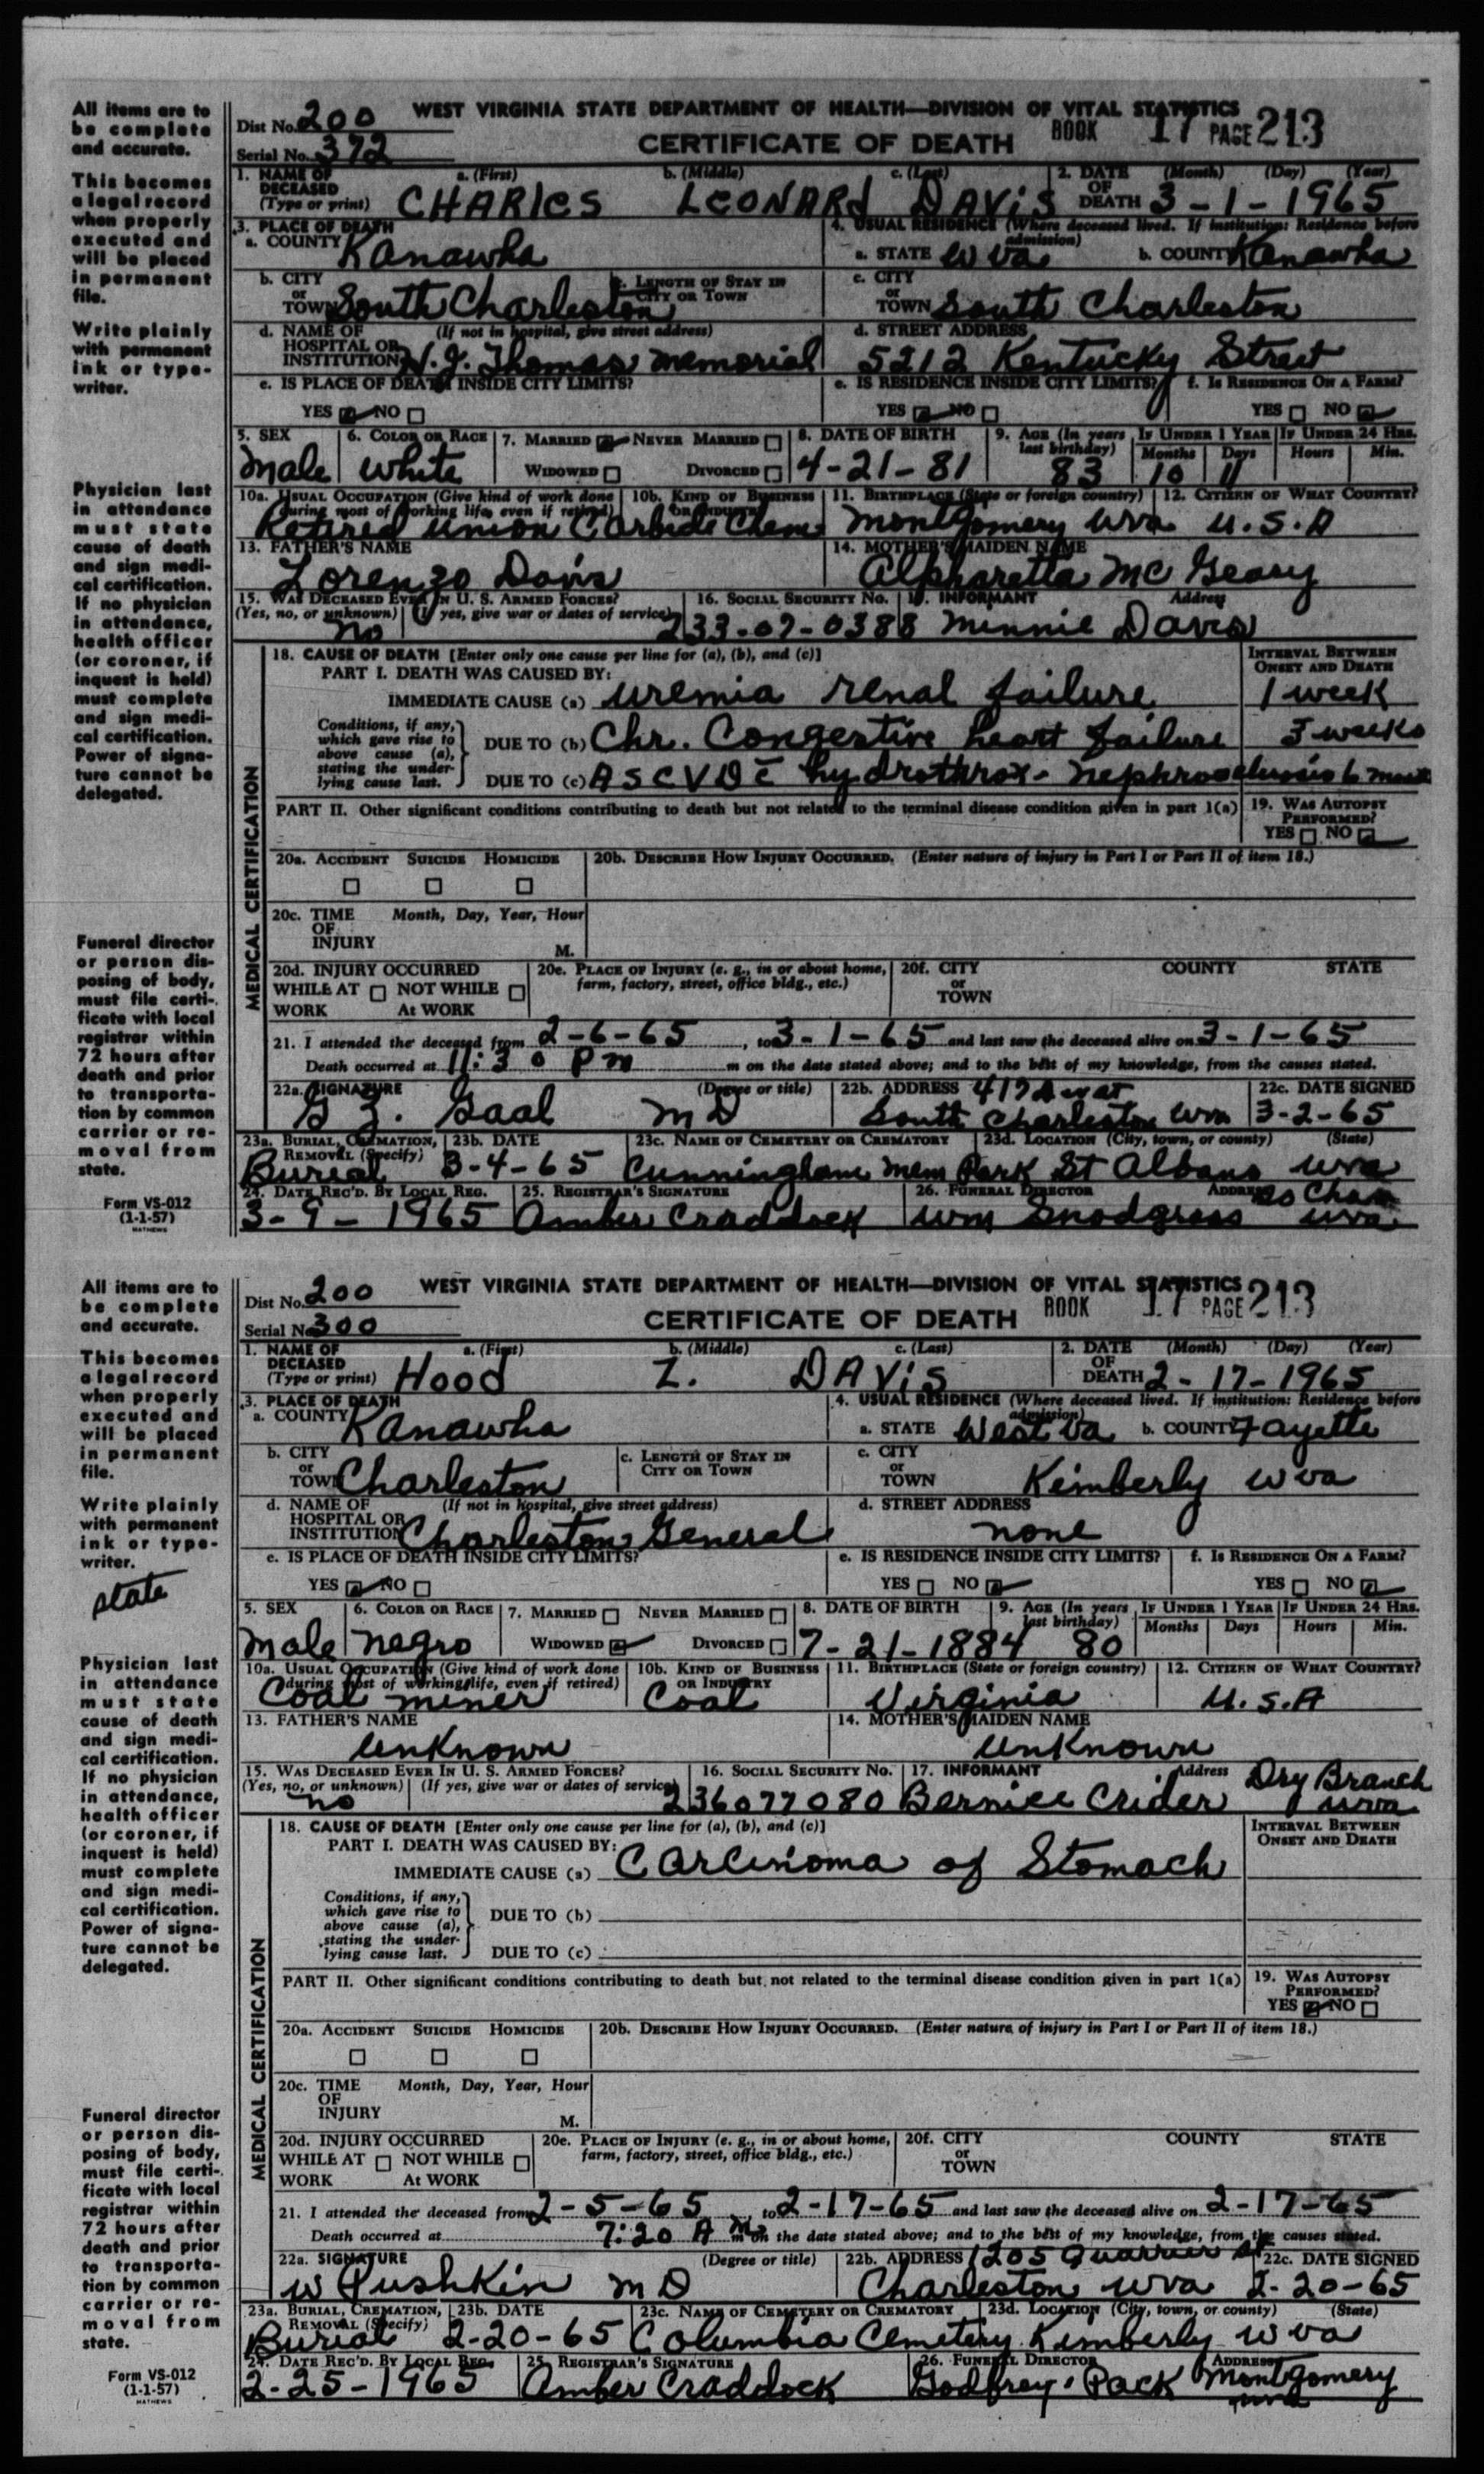 All items are to
be complete
and accurate.
This becomes
a legal record
when properly
executed and
will be placed
in permanent
file.
Write plainly
with permanent
ink or type-
writer.
Physician last
in attendance
must state
cause of death
and sign medi-
cal certification.
If no physician
in attendance,
health officer
(or coroner, if
inquest is held)
must complete
and sign medi-
cal certification.
Power of signa-
ture cannot be
delegated.
Funeral director
or person dis-
posing of body,
must file certi-
ficate with local
registrar within
72 hours after
death and prior
to transporta-
tion by common
carrier or re-
moval from
state.
Form VS-012
(1-1-57)
MATHEWS
WEST VIRGINIA STATE DEPARTMENT OF HEALTH—DIVISION OF VITAL STATISTICS
Dist No. 200
Serial No. 372
CERTIFICATE OF DEATH BOOK 17 PAGE 213
1. NAME OF DECEASED (Type or print) a. (First) b. (Middle) c. (Last) 2. DATE OF DEATH (Month) (Day) (Year)
CHARlES LEONARd DAViS 3-1-1965
3. PLACE OF DEATH 4. USUAL RESIDENCE (Where deceased lived. If institution: Residence before admission)
a. COUNTY Kanawha a. STATE W Va b. COUNTY Kanawha
b. CITY or TOWN South Charleston c. LENGTH OF STAY IN CITY OR TOWN c. CITY or TOWN South Charleston
d. NAME OF HOSPITAL OR INSTITUTION (If not in hospital, give street address) H. J. Thomas Memorial d. STREET ADDRESS 5212 Kentucky Street
e. IS PLACE OF DEATH INSIDE CITY LIMITS? e. IS RESIDENCE INSIDE CITY LIMITS? f. IS RESIDENCE ON A FARM?
YES NO YES NO YES NO
5. SEX 6. COLOR OR RACE 7. MARRIED NEVER MARRIED WIDOWED DIVORCED 8. DATE OF BIRTH 9. AGE (In years last birthday) IF UNDER 1 YEAR Months Days IF UNDER 24 HRS. Hours Min.
Male White 4-21-81 83 10 11
10a. USUAL OCCUPATION (Give kind of work done during most of working life, even if retired) 10b. KIND OF BUSINESS OR INDUSTRY 11. BIRTHPLACE (State or foreign country) 12. CITIZEN OF WHAT COUNTRY?
Retired Union Carbide Chem Montgomery WVa U.S.A
13. FATHER'S NAME 14. MOTHER'S MAIDEN NAME
Lorenzo Davis Alpharetta Mc Geary
15. WAS DECEASED EVER IN U. S. ARMED FORCES? (Yes, no, or unknown) (If yes, give war or dates of service) 16. SOCIAL SECURITY NO. 17. INFORMANT Address
no 233-07-0388 Minnie Davis
MEDICAL CERTIFICATION
18. CAUSE OF DEATH [Enter only one cause per line for (a), (b), and (c)] INTERVAL BETWEEN ONSET AND DEATH
PART I. DEATH WAS CAUSED BY:
IMMEDIATE CAUSE (a) uremia renal failure 1 week
Conditions, if any, which gave rise to above cause (a), stating the underlying cause last.
DUE TO (b) Chr. Congestive heart failure 3 weeks
DUE TO (c) ASCVD c̄ hydrothrox-
PART II. Other significant conditions contributing to death but not related to the terminal disease condition given in part 1(a) 19. WAS AUTOPSY PERFORMED? YES NO
20a. ACCIDENT SUICIDE HOMICIDE 20b. DESCRIBE HOW INJURY OCCURRED. (Enter nature of injury in Part I or Part II of item 18.)
20c. TIME OF INJURY Month, Day, Year, Hour M.
20d. INJURY OCCURRED WHILE AT WORK NOT WHILE At WORK 20e. PLACE OF INJURY (e. g., in or about home, farm, factory, street, office bldg., etc.) 20f. CITY or TOWN COUNTY STATE
21. I attended the deceased from 2-6-65, to 3-1-65 and last saw the deceased alive on 3-1-65
Death occurred at 11:30 Pm m on the date stated above; and to the best of my knowledge, from the causes stated.
22a. SIGNATURE (Degree or title) 22b. ADDRESS 22c. DATE SIGNED
G Z. Gaal MD 417 D South Charleston 3-2-65
23a. BURIAL, CREMATION, REMOVAL (Specify) 23b. DATE 23c. NAME OF CEMETERY OR CREMATORY 23d. LOCATION (City, town, or county) (State)
Burial 3-4-65 Cunningham Mem Park St Albans WVa
24. DATE REC'D. BY LOCAL REG. 25. REGISTRAR'S SIGNATURE 26. FUNERAL DIRECTOR ADDRESS
3-9-1965 Amber Craddock Wm Snodgrass So Chas WVa
All items are to
be complete
and accurate.
This becomes
a legal record
when properly
executed and
will be placed
in permanent
file.
Write plainly
with permanent
ink or type-
writer.
state
Physician last
in attendance
must state
cause of death
and sign medi-
cal certification.
If no physician
in attendance,
health officer
(or coroner, if
inquest is held)
must complete
and sign medi-
cal certification.
Power of signa-
ture cannot be
delegated.
Funeral director
or person dis-
posing of body,
must file certi-
ficate with local
registrar within
72 hours after
death and prior
to transporta-
tion by common
carrier or re-
moval from
state.
Form VS-012
(1-1-57)
MATHEWS
WEST VIRGINIA STATE DEPARTMENT OF HEALTH—DIVISION OF VITAL STATISTICS
Dist No. 200
Serial No. 300
CERTIFICATE OF DEATH BOOK 17 PAGE 213
1. NAME OF DECEASED (Type or print) a. (First) b. (Middle) c. (Last) 2. DATE OF DEATH (Month) (Day) (Year)
Hood Z. DAViS 2-17-1965
3. PLACE OF DEATH 4. USUAL RESIDENCE (Where deceased lived. If institution: Residence before admission)
a. COUNTY Kanawha a. STATE West Va b. COUNTY Fayette
b. CITY or TOWN Charleston c. LENGTH OF STAY IN CITY OR TOWN c. CITY or TOWN Kimberly WVa
d. NAME OF HOSPITAL OR INSTITUTION (If not in hospital, give street address) Charleston General d. STREET ADDRESS none
e. IS PLACE OF DEATH INSIDE CITY LIMITS? e. IS RESIDENCE INSIDE CITY LIMITS? f. IS RESIDENCE ON A FARM?
YES NO YES NO YES NO
5. SEX 6. COLOR OR RACE 7. MARRIED NEVER MARRIED WIDOWED DIVORCED 8. DATE OF BIRTH 9. AGE (In years last birthday) IF UNDER 1 YEAR Months Days IF UNDER 24 HRS. Hours Min.
Male negro 7-21-1884 80
10a. USUAL OCCUPATION (Give kind of work done during most of working life, even if retired) 10b. KIND OF BUSINESS OR INDUSTRY 11. BIRTHPLACE (State or foreign country) 12. CITIZEN OF WHAT COUNTRY?
Coal miner Coal Virginia U.S.A
13. FATHER'S NAME 14. MOTHER'S MAIDEN NAME
unknown unknown
15. WAS DECEASED EVER IN U. S. ARMED FORCES? (Yes, no, or unknown) (If yes, give war or dates of service) 16. SOCIAL SECURITY NO. 17. INFORMANT Address
no 236077080 Bernice Crider Dry Branch WVa
MEDICAL CERTIFICATION
18. CAUSE OF DEATH [Enter only one cause per line for (a), (b), and (c)] INTERVAL BETWEEN ONSET AND DEATH
PART I. DEATH WAS CAUSED BY:
IMMEDIATE CAUSE (a) Carcinoma of Stomach
Conditions, if any, which gave rise to above cause (a), stating the underlying cause last.
DUE TO (b)
DUE TO (c)
PART II. Other significant conditions contributing to death but not related to the terminal disease condition given in part 1(a) 19. WAS AUTOPSY PERFORMED? YES NO
20a. ACCIDENT SUICIDE HOMICIDE 20b. DESCRIBE HOW INJURY OCCURRED. (Enter nature of injury in Part I or Part II of item 18.)
20c. TIME OF INJURY Month, Day, Year, Hour M.
20d. INJURY OCCURRED WHILE AT WORK NOT WHILE At WORK 20e. PLACE OF INJURY (e. g., in or about home, farm, factory, street, office bldg., etc.) 20f. CITY or TOWN COUNTY STATE
21. I attended the deceased from 2-5-65 to 2-17-65 and last saw the deceased alive on 2-17-65
Death occurred at 7:20 A m. m on the date stated above; and to the best of my knowledge, from the causes stated.
22a. SIGNATURE (Degree or title) 22b. ADDRESS 22c. DATE SIGNED
W Pushkin MD 1205 Quarrier St Charleston WVa 2-20-65
23a. BURIAL, CREMATION, REMOVAL (Specify) 23b. DATE 23c. NAME OF CEMETERY OR CREMATORY 23d. LOCATION (City, town, or county) (State)
Burial 2-20-65 Columbia Cemetery Kimberly WVa
24. DATE REC'D. BY LOCAL REG. 25. REGISTRAR'S SIGNATURE 26. FUNERAL DIRECTOR ADDRESS
2-25-1965 Amber Craddock Godfrey. Pack Montgomery WVa